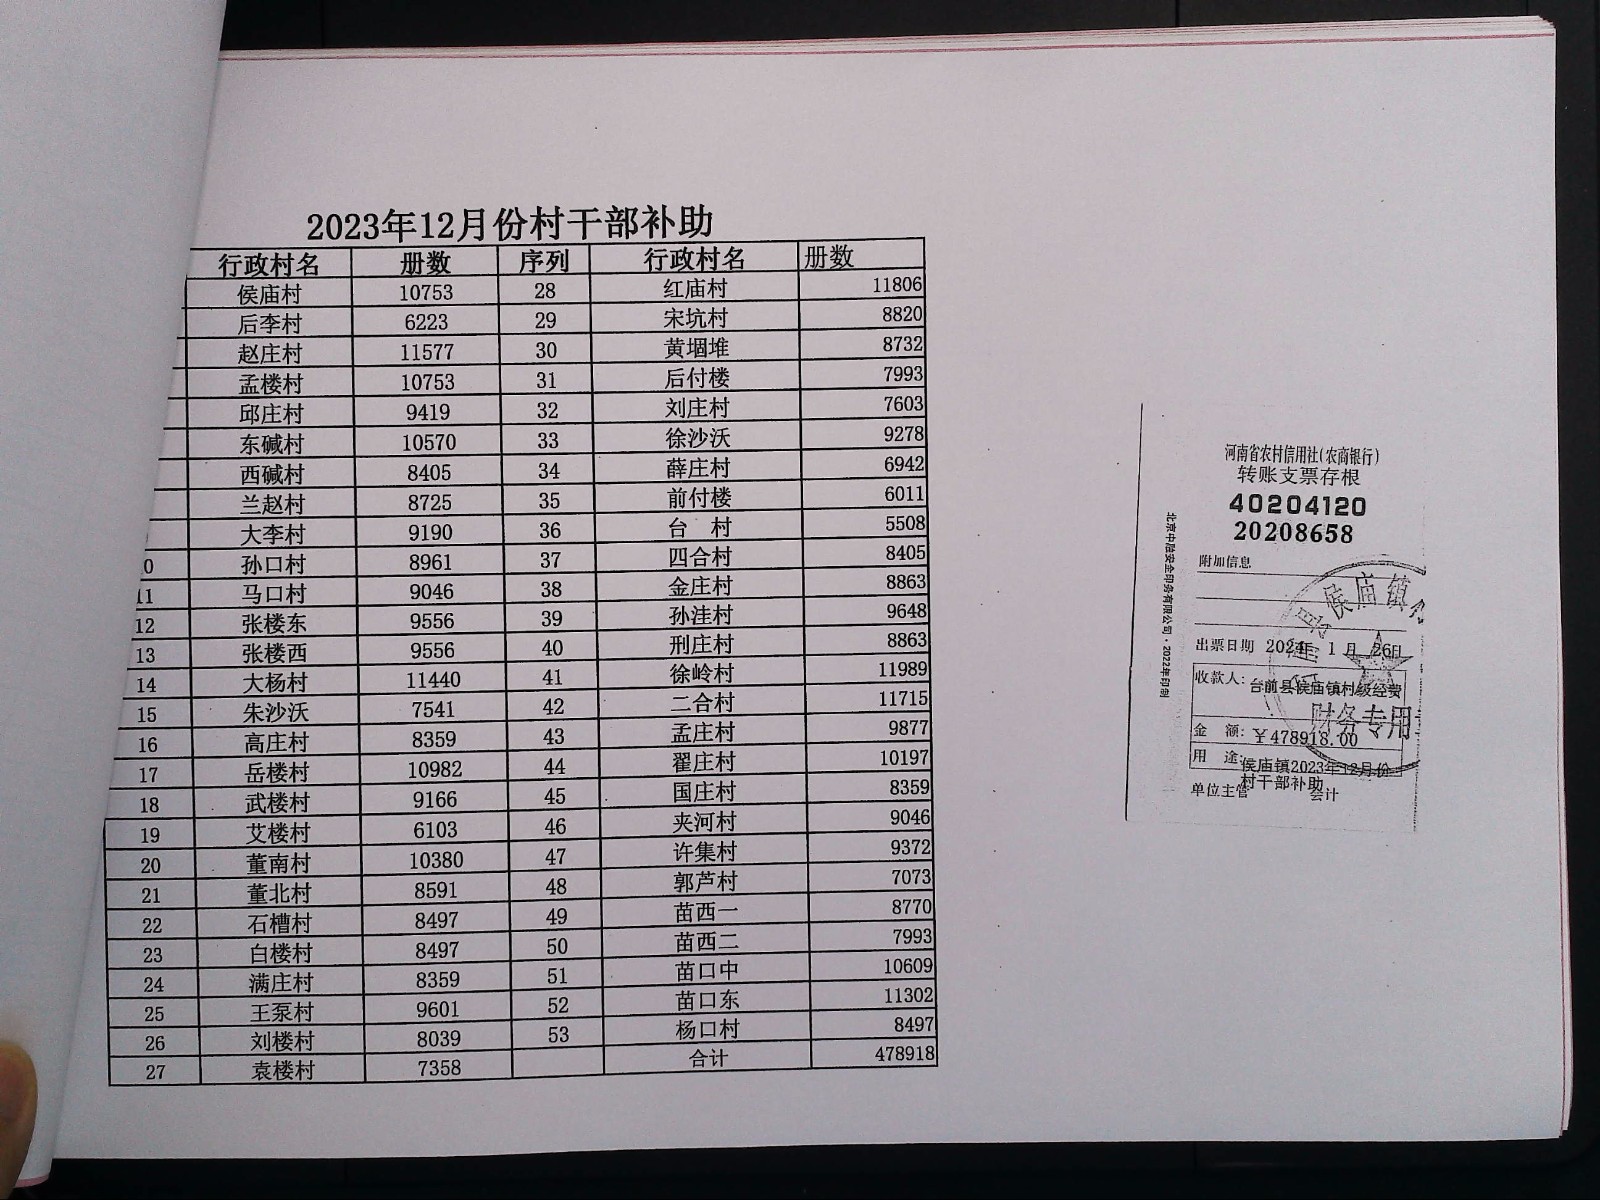 2023年12月份村干部补助
行政村名 册数 序列 行政村名 册数
侯庙村 10753 28 红庙村 11806
后李村 6223 29 宋坑村 8820
赵庄村 11577 30 黄堌堆 8732
孟楼村 10753 31 后付楼 7993
邱庄村 9419 32 刘庄村 7603
东碱村 10570 33 徐沙沃 9278
西碱村 8405 34 薛庄村 6942
兰赵村 8725 35 前付楼 6011
大李村 9190 36 台 村 5508
0 孙口村 8961 37 四合村 8405
11 马口村 9046 38 金庄村 8863
12 张楼东 9556 39 孙洼村 9648
13 张楼西 9556 40 刑庄村 8863
14 大杨村 11440 41 徐岭村 11989
15 朱沙沃 7541 42 二合村 11715
16 高庄村 8359 43 孟庄村 9877
17 岳楼村 10982 44 翟庄村 10197
18 武楼村 9166 45 国庄村 8359
19 艾楼村 6103 46 夹河村 9046
20 董南村 10380 47 许集村 9372
21 董北村 8591 48 郭芦村 7073
22 石槽村 8497 49 苗西一 8770
23 白楼村 8497 50 苗西二 7993
24 满庄村 8359 51 苗口中 10609
25 王泵村 9601 52 苗口东 11302
26 刘楼村 8039 53 杨口村 8497
27 袁楼村 7358 合计 478918
河南省农村信用社(农商银行)
转账支票存根
40204120
20208658
附加信息
出票日期 2024年 1 月 26日
收款人: 台前县侯庙镇村级经费
金 额: ￥478918.00
用 途: 侯庙镇2023年12月份
村干部补助
单位主管 会计
北京中融安全印务有限公司·2022年印制
侯庙镇
财务专用